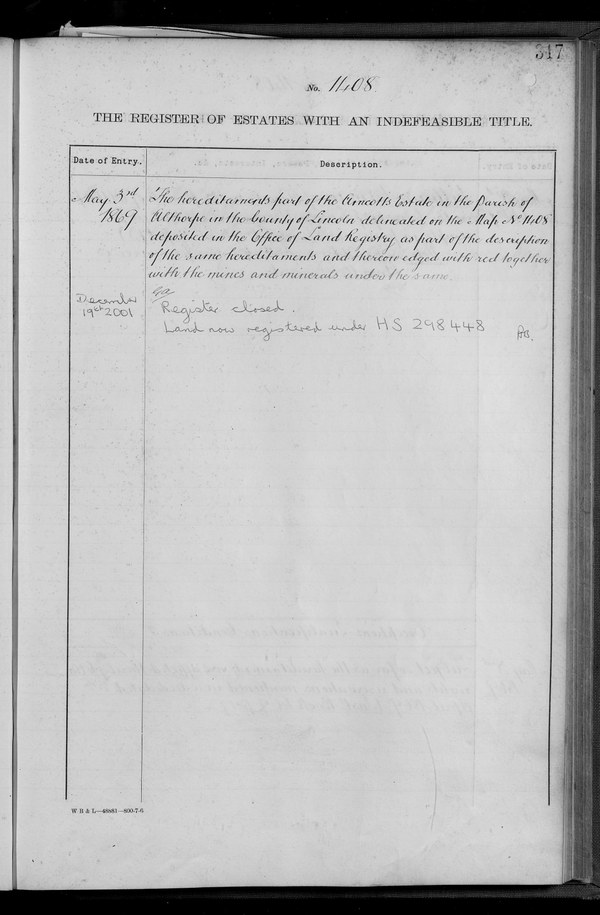 317
No. 1408
THE REGISTER OF ESTATES WITH AN INDEFEASIBLE TITLE.
Date of Entry.
Description.
May 3rd
1869
The hereditaments part of the Amcotts Estate in the Parish of
Althorpe in the County of Lincoln delineated on the Map No 1408
deposited in the Office of Land Registry as part of the description
of the same hereditaments and thereon edged with red together
with the mines and minerals under the same.
December
19th 2001.
Register closed.
Land now registered under HS 298448
W B & L—48881—800-7-6